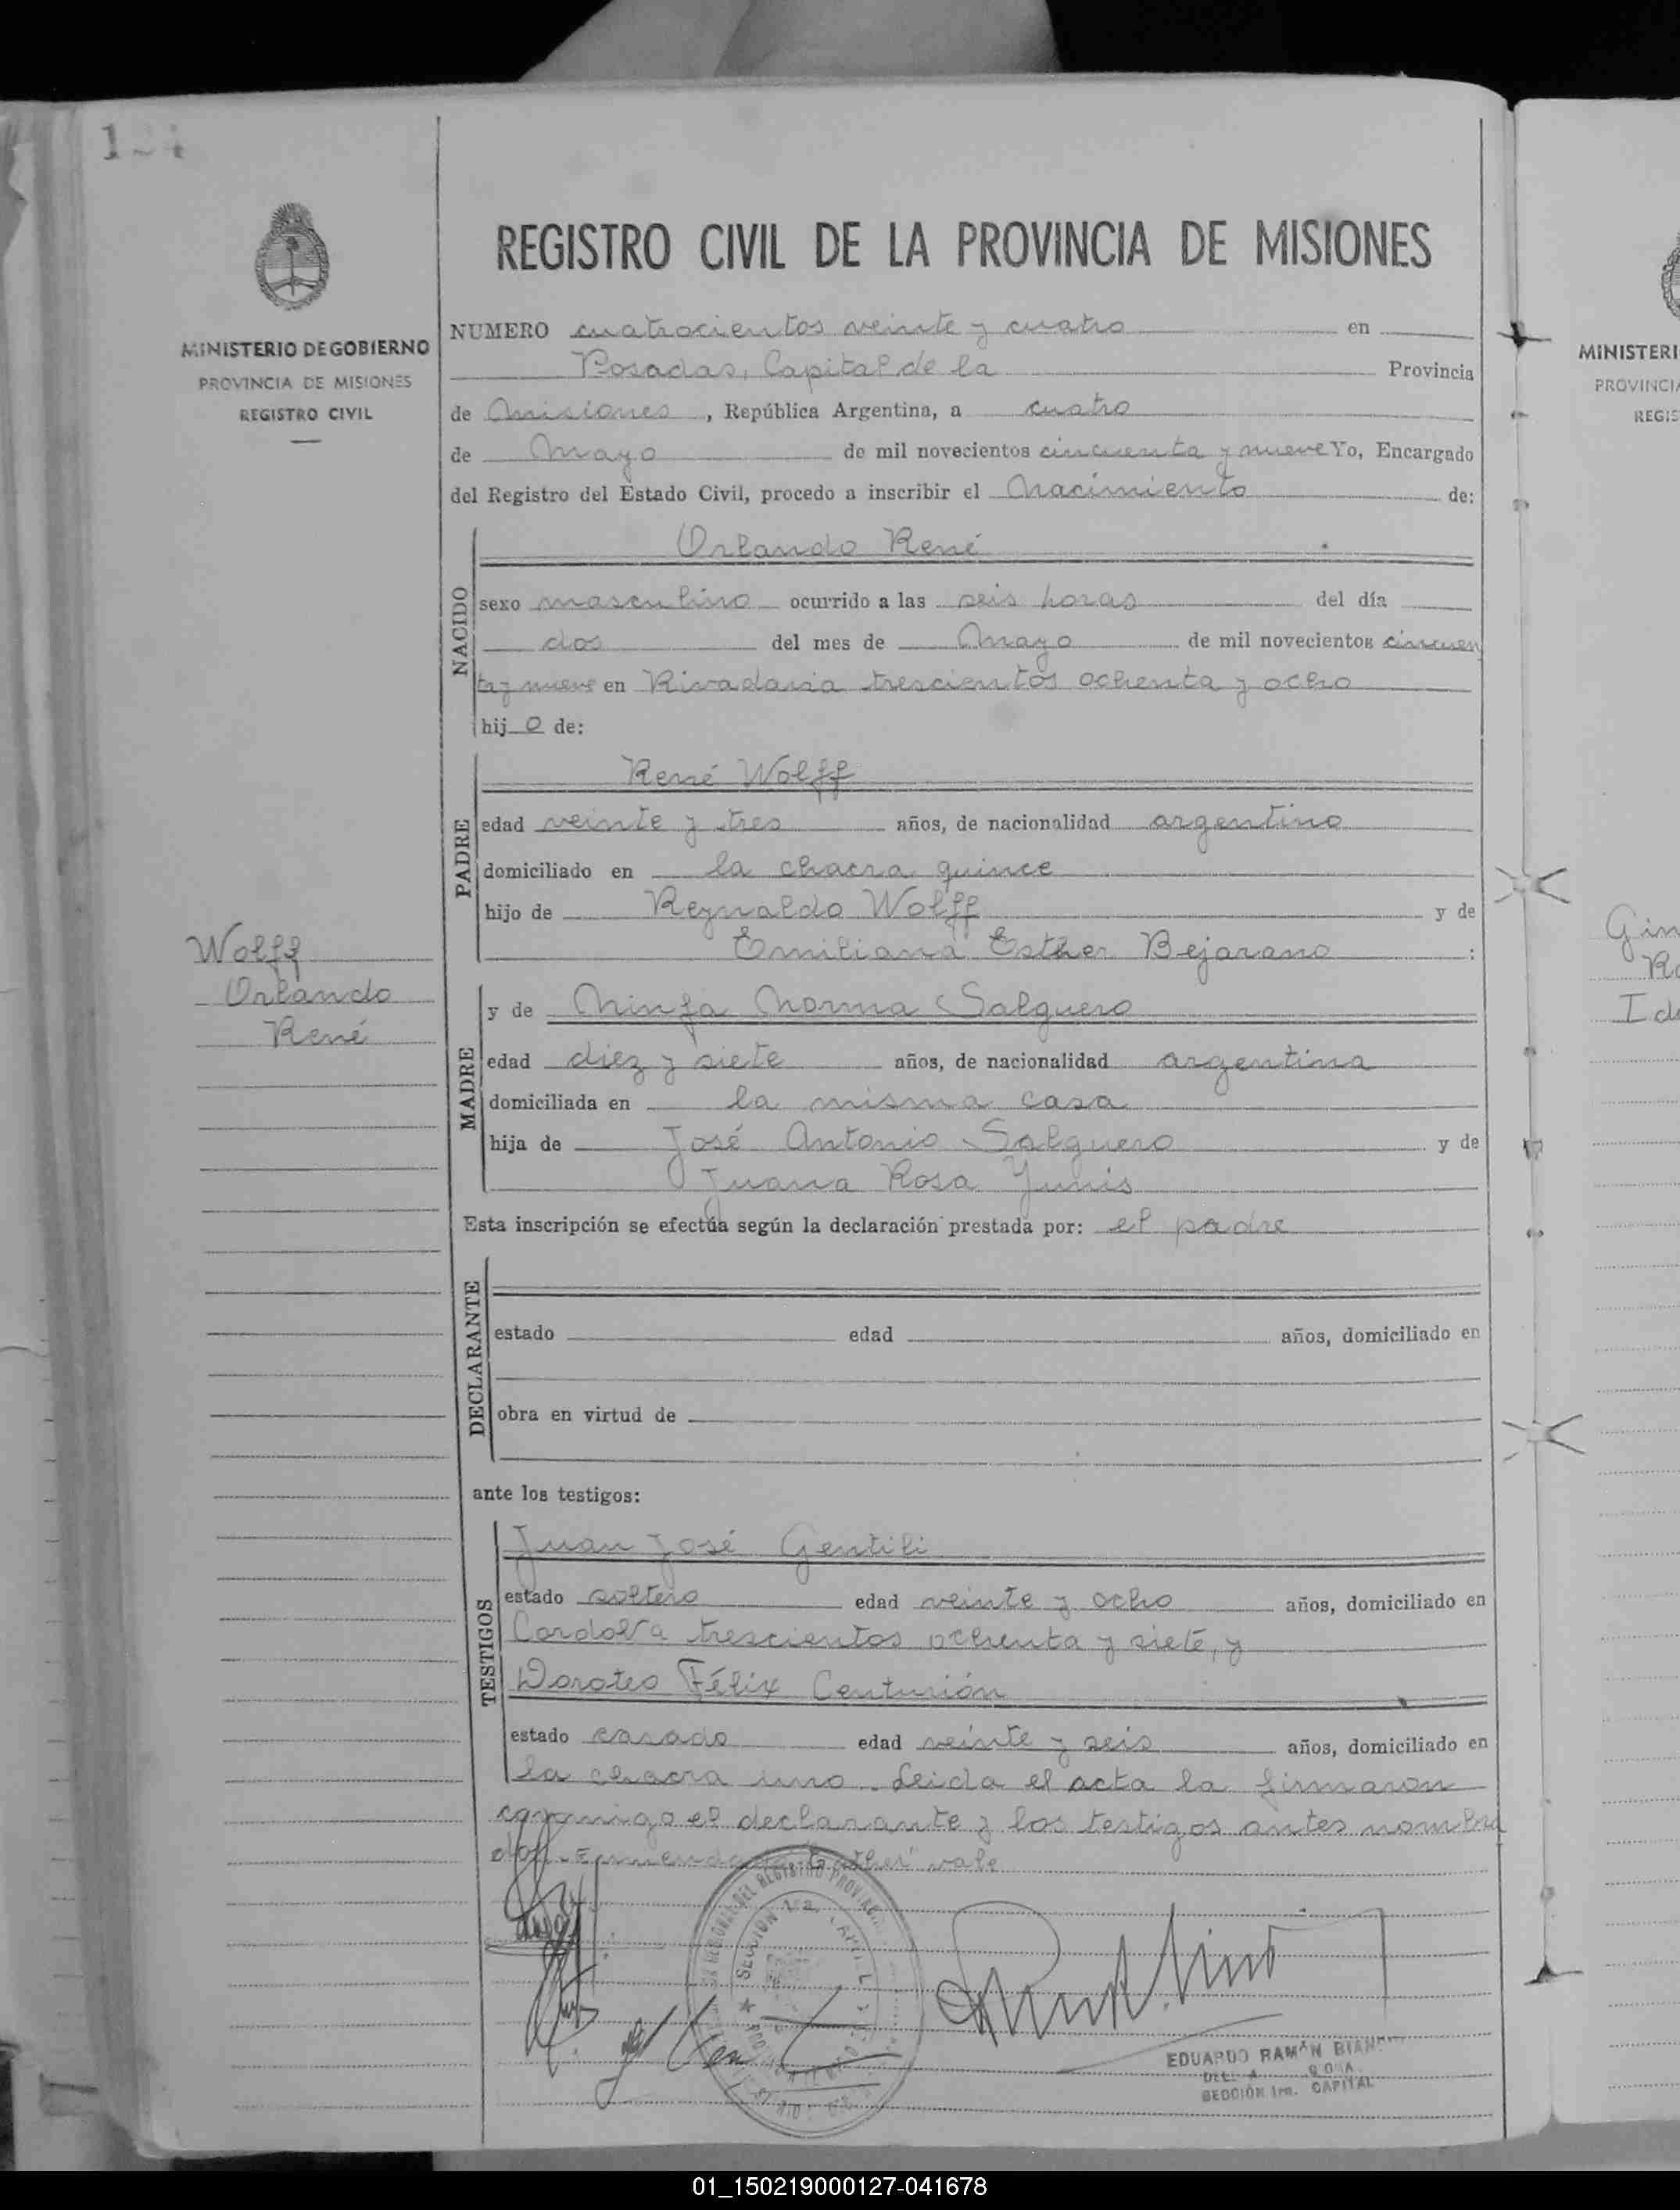 REGISTRO CIVIL DE LA PROVINCIA DE MISIONES
MINISTERIO DE GOBIERNO
PROVINCIA DE MISIONES
REGISTRO CIVIL
NUMERO cuatrocientos veinte y cuatro en
Posadas, Capital de la Provincia
de Misiones, República Argentina, a cuatro
de Mayo de mil novecientos cincuenta y nueve Yo, Encargado
del Registro del Estado Civil, procedo a inscribir el Nacimiento de:
NACIDO
Orlando René
sexo masculino ocurrido a las seis horas del día
dos del mes de Mayo de mil novecientos cincuen
ta y nueve en Rivadavia trescientos ochenta y ocho
hijo de:
PADRE
René Wolff
edad veinte y tres años, de nacionalidad argentino
domiciliado en la chacra quince
hijo de Reynaldo Wolff y de
Emiliana Esther Bejarano :
Wolff
Orlando
René
MADRE
y de Ninfa Norma Salguero
edad diez y siete años, de nacionalidad argentina
domiciliada en la misma casa
hija de José Antonio Salguero y de
Juana Rosa Yunis
Esta inscripción se efectúa según la declaración prestada por: el padre
DECLARANTE
estado edad años, domiciliado en
obra en virtud de
ante los testigos:
TESTIGOS
Juan José Gentili
estado soltero edad veinte y ocho años, domiciliado en
Cordova trescientos ochenta y siete, y
Doroteo Félix Centurión
estado casado edad veinte y seis años, domiciliado en
la chacra uno. Leida el acta la firmaron
conmigo el declarante y los testigos antes nombra
dos. Enmendado "Esther" vale
EDUARDO RAMÓN
SECCIÓN 1ra. CAPITAL
MINISTERI
PROVINCIA
REGIS
Gim
Id
01_150219000127-041678